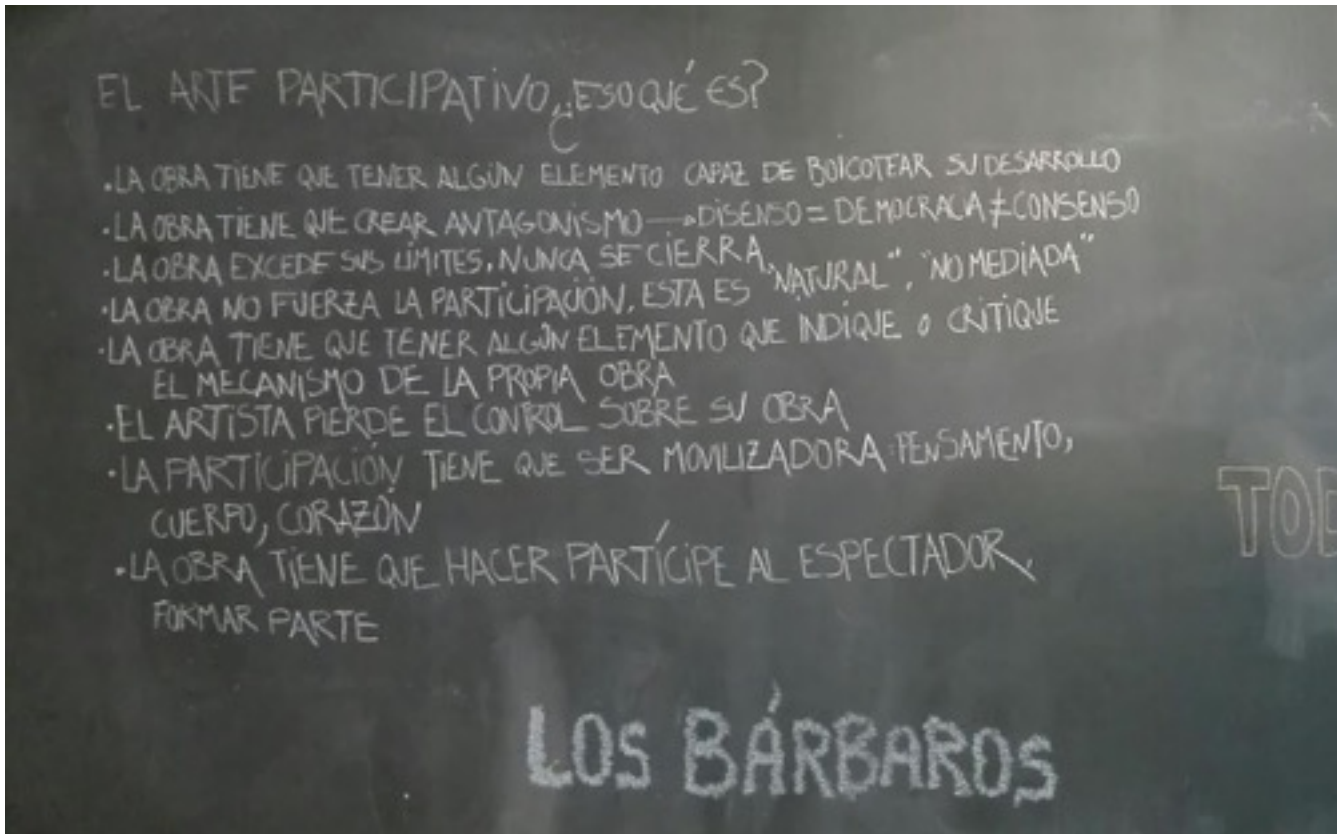 EL ARTE PARTICIPATIVO, ¿ESO QUÉ ES?
•LA OBRA TIENE QUE TENER ALGÚN ELEMENTO CAPAZ DE BOICOTEAR SU DESARROLLO
•LA OBRA TIENE QUE CREAR ANTAGONISMO → DISENSO = DEMOCRACIA ≠ CONSENSO
•LA OBRA EXCEDE SUS LÍMITES, NUNCA SE CIERRA.
•LA OBRA NO FUERZA LA PARTICIPACIÓN, ESTA ES "NATURAL", "NO MEDIADA"
•LA OBRA TIENE QUE TENER ALGÚN ELEMENTO QUE INDIQUE O CRITIQUE
EL MECANISMO DE LA PROPIA OBRA
•EL ARTISTA PIERDE EL CONTROL SOBRE SU OBRA
•LA PARTICIPACIÓN TIENE QUE SER MOVILIZADORA: PENSAMENTO,
CUERPO, CORAZÓN
•LA OBRA TIENE QUE HACER PARTÍCIPE AL ESPECTADOR,
FORMAR PARTE
TOD
LOS BÁRBAROS